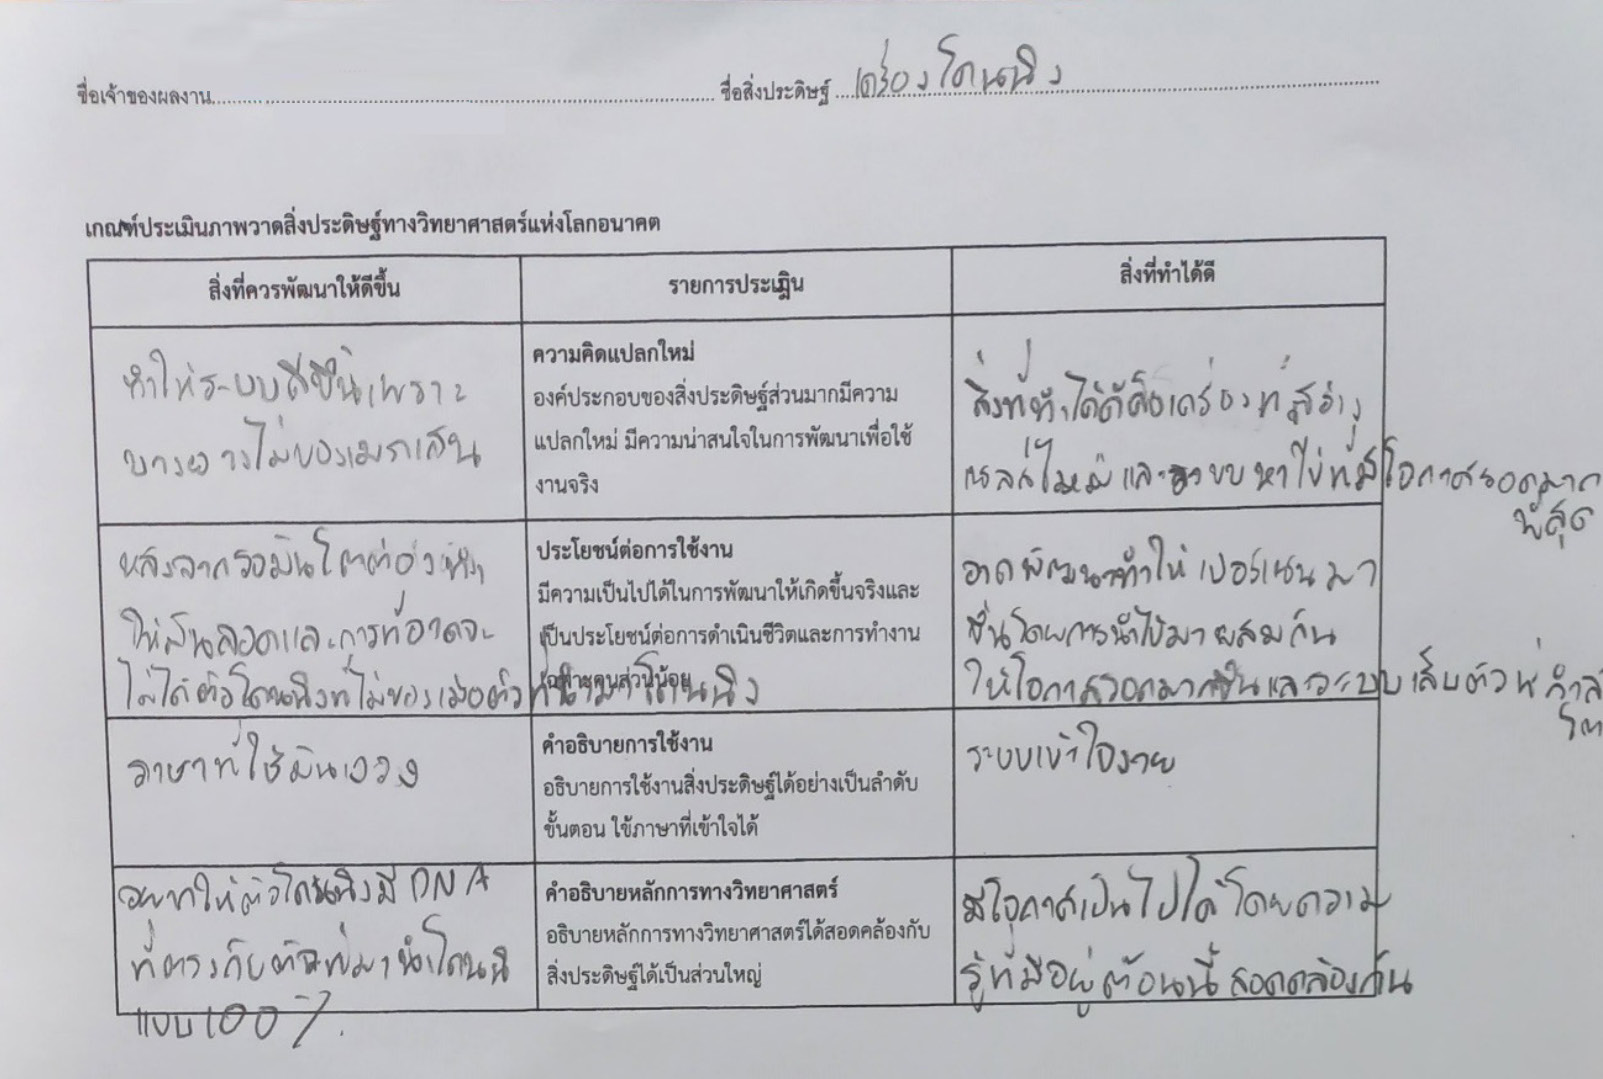 ชื่อเจ้าของผลงาน ชื่อสิ่งประดิษฐ์ เครื่องโคนนิง
เกณฑ์ประเมินภาพวาดสิ่งประดิษฐ์ทางวิทยาศาสตร์แห่งโลกอนาคต
สิ่งที่ควรพัฒนาให้ดีขึ้น
รายการประเมิน
สิ่งที่ทำได้ดี
ทำให้ระบบดีขึ้นเพราะ
บางอย่างไม่ของเมรกเสน
ความคิดแปลกใหม่
องค์ประกอบของสิ่งประดิษฐ์ส่วนมากมีความ
แปลกใหม่ มีความน่าสนใจในการพัฒนาเพื่อใช้
งานจริง
สิ่งที่ทำได้ดีคือเครื่องที่สร้าง
และระบบหาไข่ที่มีโอกาสรอดมาก
ที่สุด
หลังจากรอมันโตต่อง ทำ
ให้มันลอดและการที่อาดจะ
ไม่ได้ตัวโคนนิงที่ไม่ของเมือตัวที่นำมาโคนนิง
ประโยชน์ต่อการใช้งาน
มีความเป็นไปได้ในการพัฒนาให้เกิดขึ้นจริงและ
เป็นประโยชน์ต่อการดำเนินชีวิตและการทำงาน
เฉพาะคนส่วนน้อย
อาดพัฒนาทำให้เปอร์เซนมา
ขึ้นโดยการนำไข่มาผสมกัน
ให้โอกาสรอดมากขึ้นและระบบเล็บตัวที่กำล
โต
ภาษาที่ใช้มันงวง
คำอธิบายการใช้งาน
อธิบายการใช้งานสิ่งประดิษฐ์ได้อย่างเป็นลำดับ
ขั้นตอน ใช้ภาษาที่เข้าใจได้
ระบบเข้าใจงาย
อยากให้ตัวโคนนิงมี DNA
ที่ตรงกับตัวที่มานำโคนนิ
แบบ 100 %.
คำอธิบายหลักการทางวิทยาศาสตร์
อธิบายหลักการทางวิทยาศาสตร์ได้สอดคล้องกับ
สิ่งประดิษฐ์ได้เป็นส่วนใหญ่
มีโอกาศเป็นไปได้โดยความ
รู้ที่มีอยู่ต้อนนี้สอดคล้องกัน